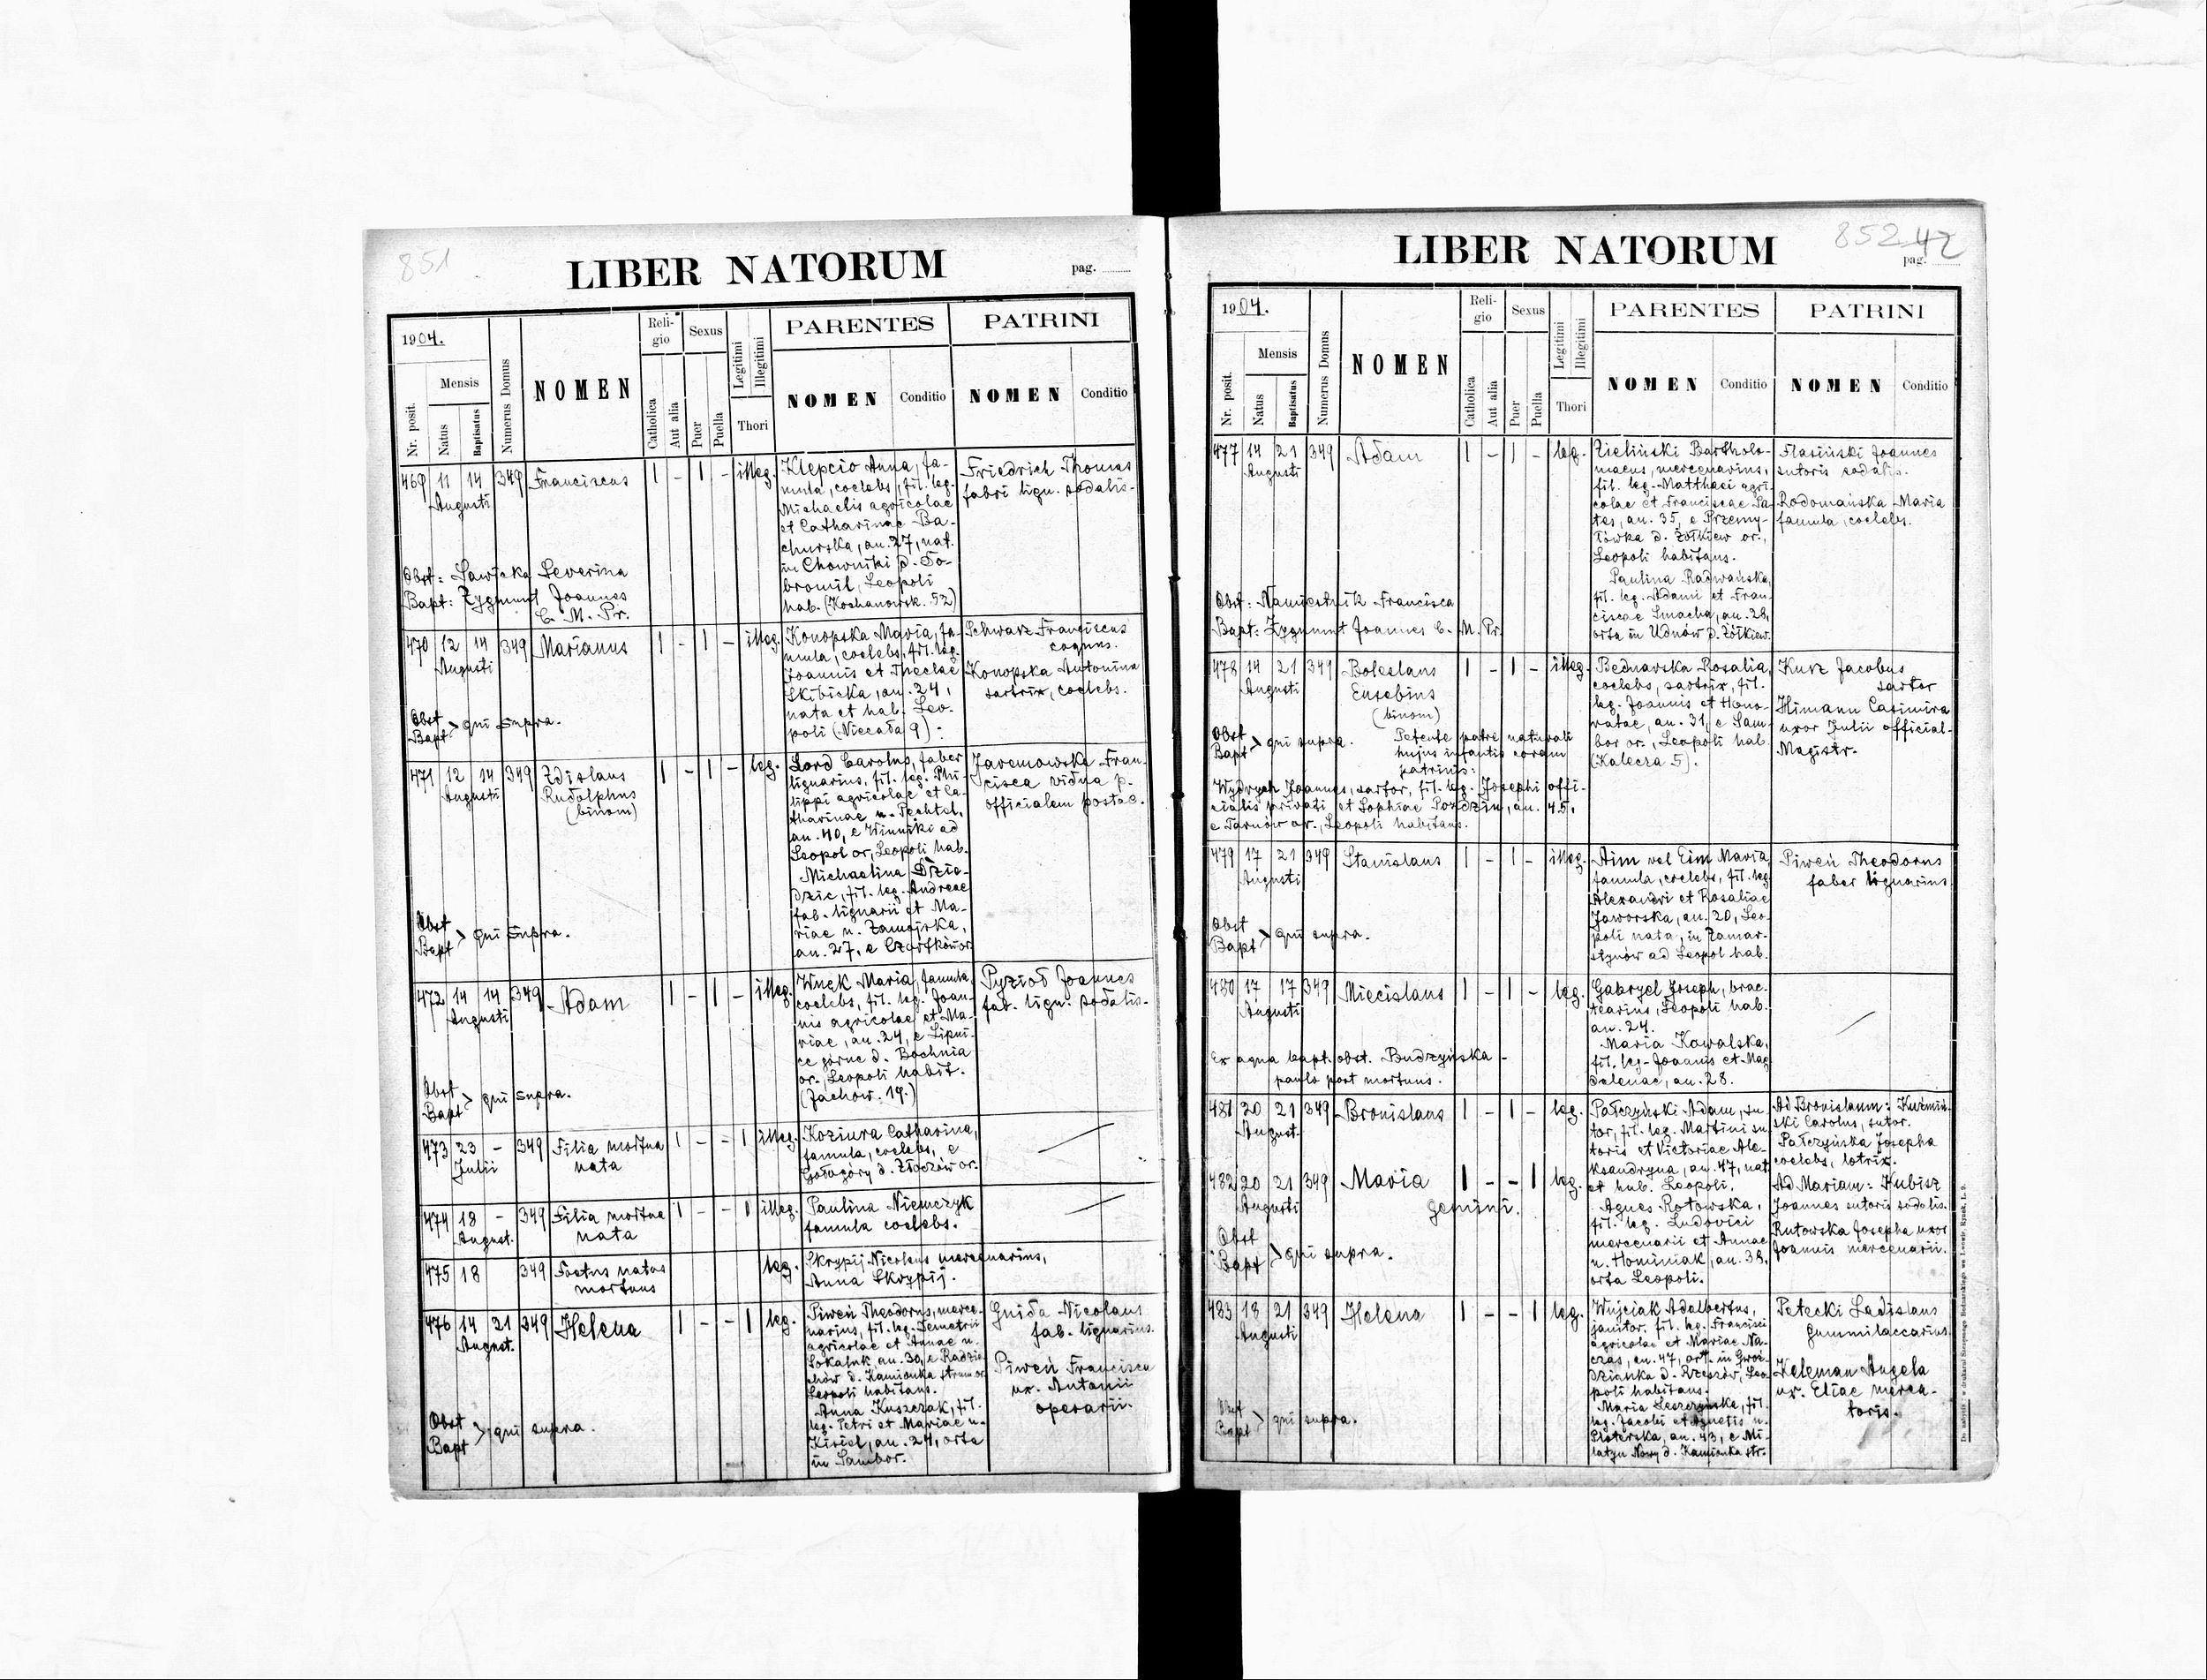 851
LIBER NATORUM
pag.
1904.
Nr. posit.
Mensis
Natus
Baptisatus
Numerus Domus
NOMEN
Reli-
gio
Catholica
Aut alia
Sexus
Puer
Puella
Legitimi
Illegitimi
Thori
PARENTES
NOMEN
Conditio
PATRINI
NOMEN
Conditio
469 11 14 349 Franciscus 1 - 1 - illeg.
Augusti
Klepcio Anna, fa-
mula, coelebs, fil. leg.
Michaelis agricolae
et Catharinae Ba-
churska, an. 27, nat.
in Chowniki d. Do-
bromil, Leopoli
hab. (Kochanowsk. 52)
Friedrich Thomas
fabri lign. sodalis.
Obst: Sawicka Severina
Bapt: Zygmunt Joannes
C. M. Pr.
470 12 14 349 Marianus 1 - 1 - illeg.
Augusti
Konopska Maria, fa-
mula, coelebs, fil. leg.
Joannis et Theclae
Skibicka, an. 24,
nata et hab. Leo-
poli (Niecała 9).
Schwarz Franciscus
coquus.
Konopska Antonina
sartrix, coelebs.
Obst
Bapt > qui supra.
471 12 14 349 Zdislaus 1 - 1 - leg.
Augusti
Rudolphus
(binom)
Lord Carolus, faber
lignarius, fil. leg. Phi-
lippi agricolae et Ca-
tharinae n. Pechtel,
an. 40, e Winniki ad
Leopol or., Leopoli hab.
Michaelina Dzia-
dzic, fil. leg. Andreae
fab. lignarii et Ma-
riae n. Zamojska,
an. 27, e Czortków or.
Jaremowska Fran-
cisca vidua p.
officialem postae.
Obst
Bapt > qui supra.
472 14 14 349 Adam 1 - 1 - illeg.
Augusti
Wnęk Maria, famula,
coelebs, fil. leg. Joan-
nis agricolae et Ma-
riae, an. 24, e Lipni-
ce górne d. Bochnia
or., Leopoli habit.
(Jachow. 19.)
Pyzioł Joannes
fab. lign. sodalis.
Obst
Bapt > qui supra.
473 23 - 349 Filia mortua 1 - - 1 illeg.
Julii
nata
Koziura Catharina,
famula, coelebs, e
Gołogóry d. Złoczów or.
474 18 - 349 Filia mortua 1 - - 1 illeg.
August.
nata
Paulina Niemczyk
famula coelebs.
475 18 349 Foetus natus leg.
mortuus
Skrypij Nicolaus mercenarius,
Anna Skrypij.
476 14 21 349 Helena 1 - - 1 leg.
August.
Piweń Theodorus, merce-
narius, fil. leg. Demetrii
agricolae et Annae n.
Sokaluk, an. 30, e Radzie-
chów d. Kamionka strum. or.
Leopoli habitans.
Anna Kuszczak, fil.
leg. Petri et Mariae n.
Kiriel, an. 24, orta
in Sambor.
Gnida Nicolaus
fab. lignarius.
Piweń Francisca
ux. Antonii
operarii.
Obst
Bapt > qui supra.
852 42
LIBER NATORUM
pag.
1904.
Nr. posit.
Mensis
Natus
Baptisatus
Numerus Domus
NOMEN
Reli-
gio
Catholica
Aut alia
Sexus
Puer
Puella
Legitimi
Illegitimi
Thori
PARENTES
NOMEN
Conditio
PATRINI
NOMEN
Conditio
477 14 21 349 Adam 1 - 1 - leg.
Augusti
Zieliński Bartholo-
maeus, mercenarius,
fil. leg. Matthaei agri-
colae et Franciscae Pa-
tes, an. 35, e Przemy-
łówka d. Żółkiew or.,
Leopoli habitans.
Paulina Radwańska,
fil. leg. Adami et Fran-
ciscae Smacha, an. 28,
orta in Udnów d. Żółkiew.
Flasiński Joannes
sutoris sodalis.
Radomańska Maria
famula, coelebs.
Obst: Namiestnik Francisca
Bapt: Zygmunt Joannes C. M. Pr.
478 14 21 349 Boleslaus 1 - 1 - illeg.
Augusti
Eusebius
(binom)
Bednarska Rosalia,
coelebs, sartrix, fil.
leg. Joannis et Hono-
ratae, an. 31, e Sam-
bor or., Leopoli hab.
(Kalecza 5).
Kurz Jacobus
sartor
Himann Casimira
uxor Julii official.
Magistr.
Obst
Bapt > qui supra.
Petente patre naturali
hujus infantis coram
patrinis:
Wydrych Joannes, sartor, fil. leg. Josephi offi-
cialis privati et Sophiae Pozdzin, an. 45,
e Tarnów or., Leopoli habitans.
479 17 21 349 Stanislaus 1 - 1 - illeg.
Augusti
Aim vel Eim Maria,
famula, coelebs, fil. leg.
Alexandri et Rosaliae
Jaworska, an. 20, Leo-
poli nata, in Zamar-
stynów ad Leopol hab.
Piweń Theodorus
faber lignarius
Obst
Bapt > qui supra.
480 17 17 349 Miecislaus 1 - 1 - leg.
Augusti
Gabryel Joseph, brac-
tearius, Leopoli hab.
an. 24.
Maria Kowalska,
fil. leg. Joannis et Mag-
dalenae, an. 28.
Ex aqua bapt. obst. Budzyńska -
paulo post mortuus.
481 20 21 349 Bronislaus 1 - 1 - leg.
August.
Pałczyński Adam, su-
tor, fil. leg. Martini su-
toris et Victoriae Ale-
ksandryna, an. 47, nat.
et hab. Leopoli,
Agnes Rotowska,
fil. leg. Ludovici
mercenarii et Annae
n. Hominiak, an. 38,
orta Leopoli.
Ad Bronislaum: Kuźmiń-
ski Carolus, sutor.
Pałczyńska Josepha
coelebs, lotrix.
482 20 21 349 Maria 1 - - 1 leg.
Augusti
gemini.
Ad Mariam: Kubisz
Joannes sutoris sodalis.
Rutowska Josepha uxor
Joannis mercenarii.
Obst
Bapt > qui supra.
483 18 21 349 Helena 1 - - 1 leg.
Augusti
Wujciak Adalbertus,
janitor, fil. leg. Francisci
agricolae et Mariae Na-
czas, an. 47, ort. in Gwoź-
dzianka d. Rzeszów, Leo-
poli habitans.
Maria Leszczyńska, fil.
leg. Jacobi et Agnetis n.
Platerska, an. 43, e Mi-
latyn Nowy d. Kamionka str.
Petecki Ladislaus
gummilaccarius.
Keleman Angela
ux. Eliae merca-
toris.
Obst
Bapt > qui supra.